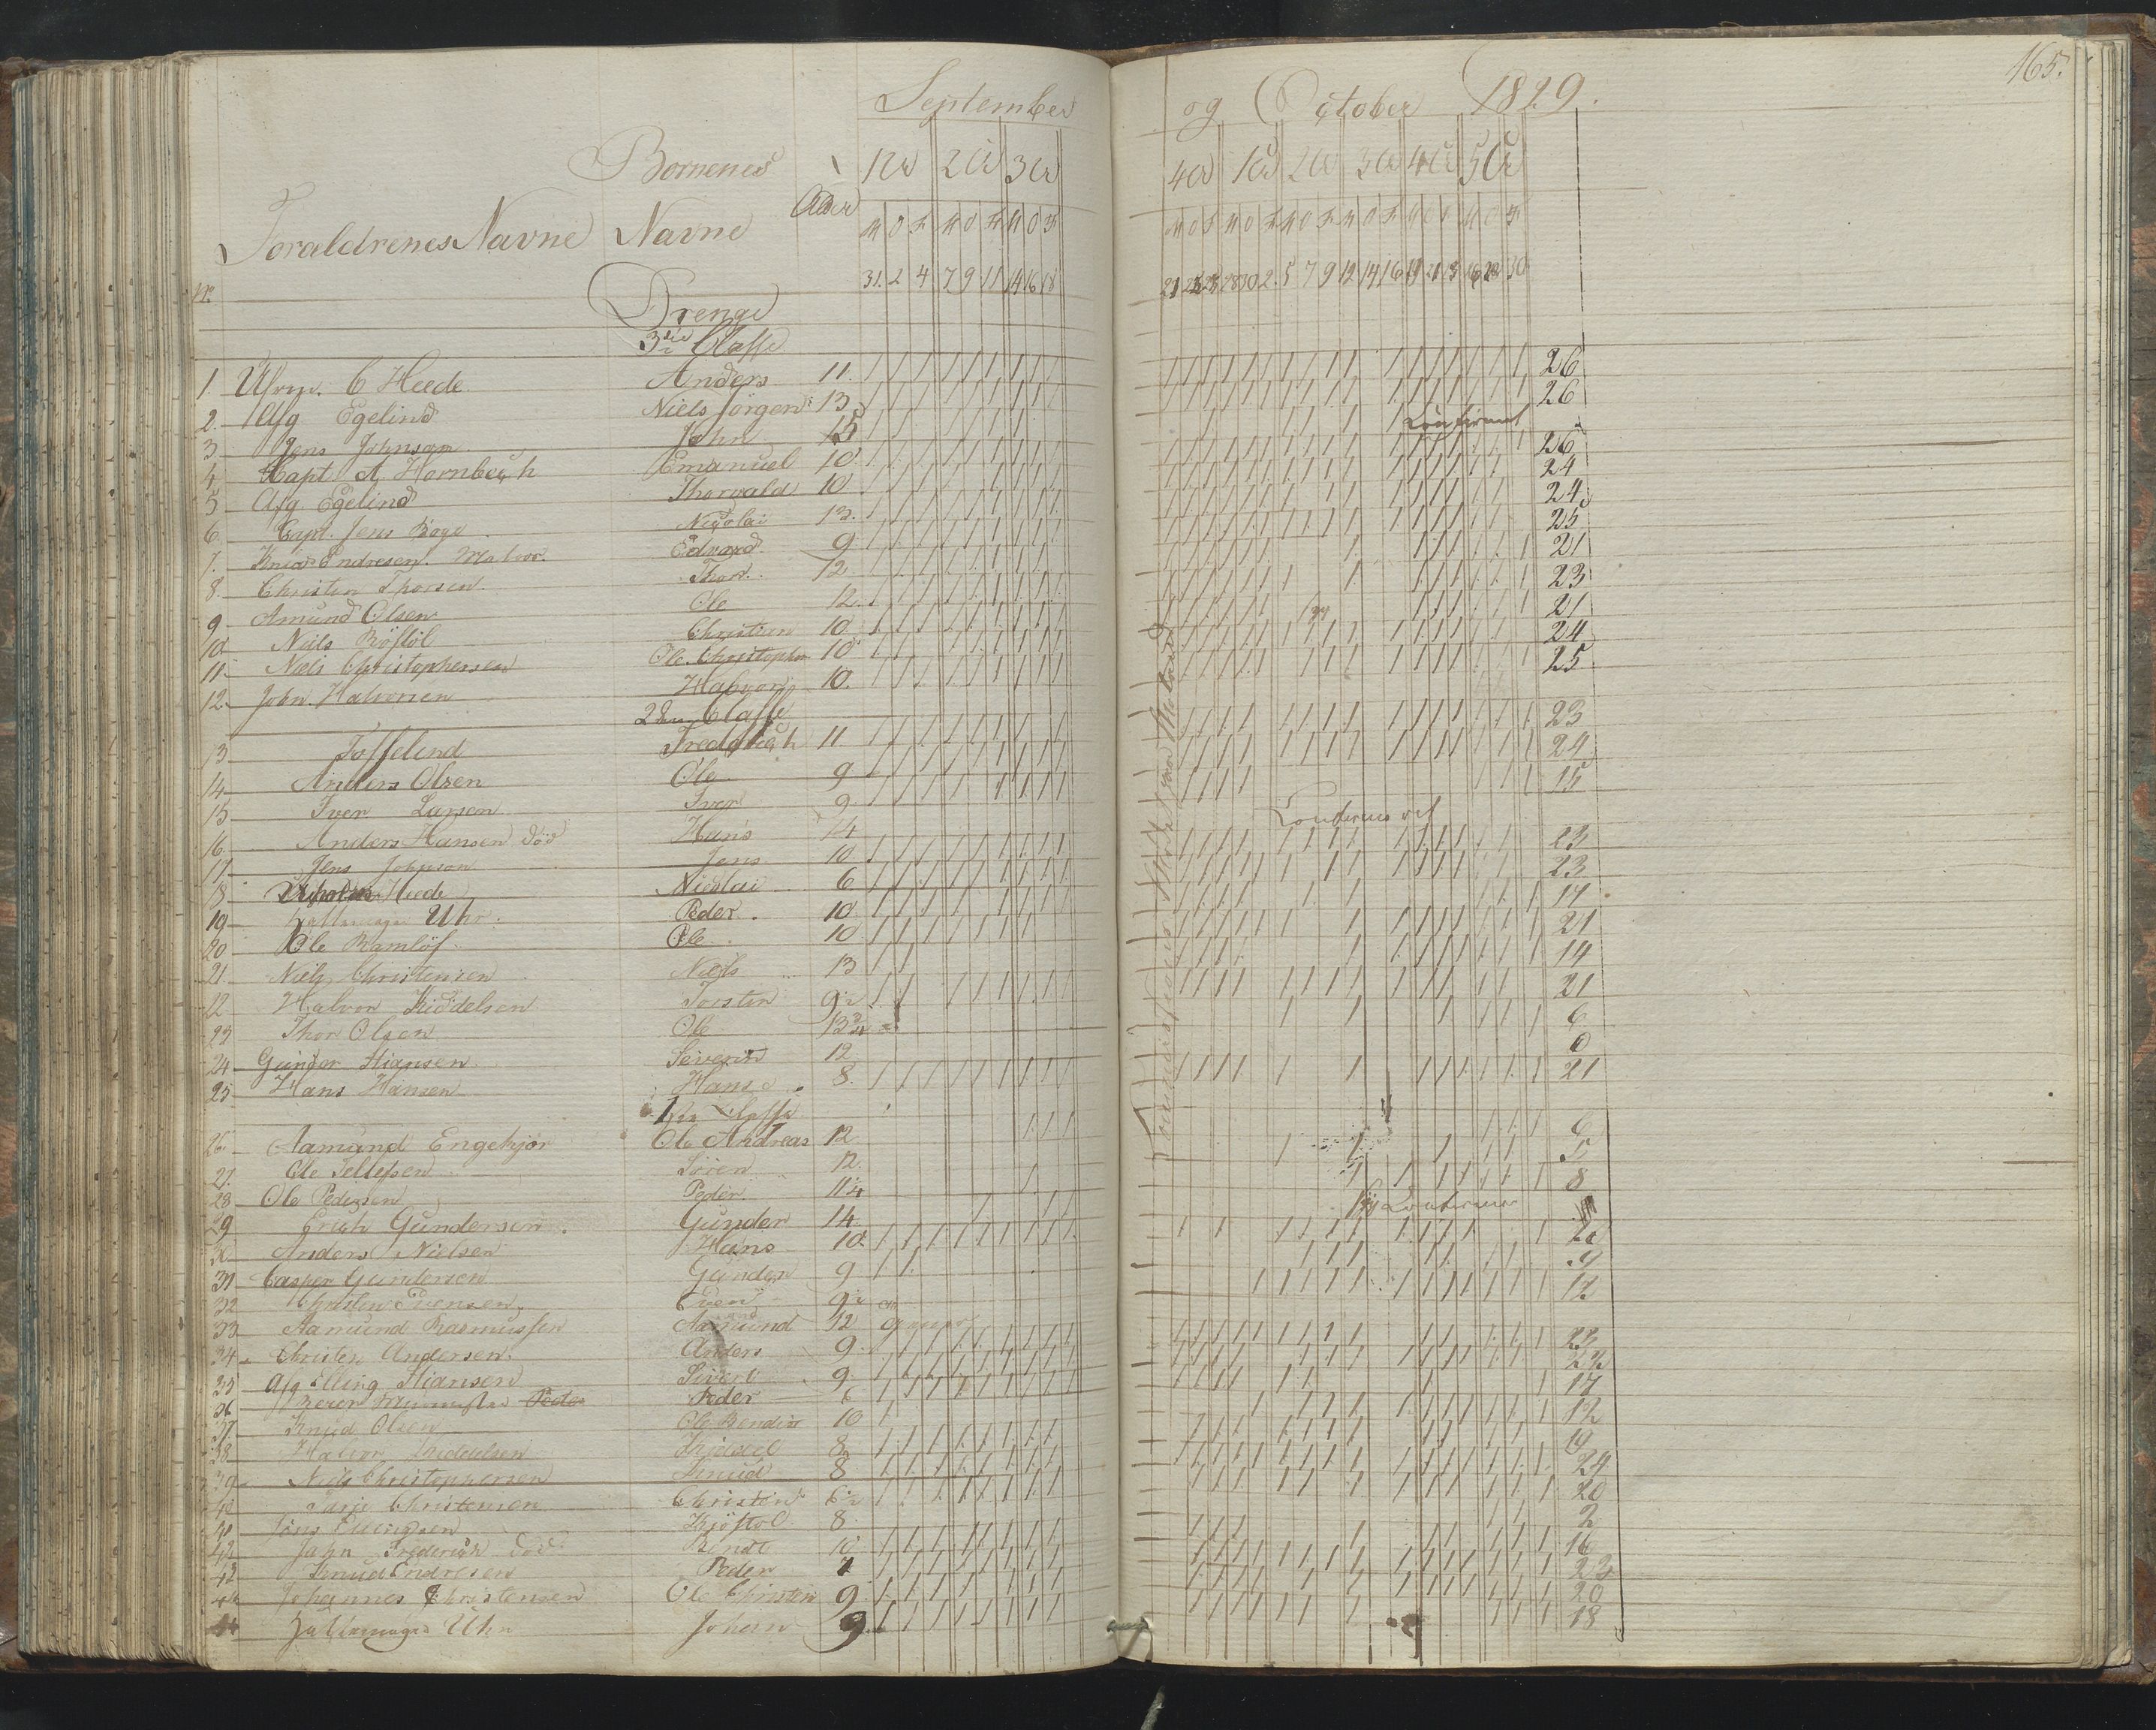 165.
September og October 1829.
Bornenes
1U 2U 3U 4U 1U 2U 3U 4U 5U
Forældrenes Navne Navne Alder
M O F M O F M O F M O F M O F M O F M O F M O F
No 31. 2 4 7 9 11 14 16 18 21 23 25 28 30 2 5 7 9 12 14 16 19 21 23 26 28 30
Drenge
3die Classe
1. C Heede Anders 11. 26
2. Afg Egelind Niels Jørgen 13 26
3 Jens Johnsøn John 15 Confirmet
4. Capt A Hornbech Emanuel 10. 26
5 Afg. Egelind Thorvald 10 24
6. Capt. Jens Bøge Nicolai 13. 24
7. Knud Endresen. Edvard 9 25
8. Christen Thorsen. Thor. 12 21
9 Amund Olsen Ole 12. 23
10 Niels Christen 10 21
11. Niels Christophersen Ole Christopher 10 24
12. John Halvorsen Halvor 10. 25
2den Classe
13 Toffelind Frederich 11. 23
14. Anders Olsen Ole 9 24
15 Iver Larsen Iver 9. 15
16 Anders Hansen død Hans 14
17. Jens Johnson Jens 10 23
18 Heede Nicolai 6 23
19 Uhr. Peder. 10 17
20 Ole Ramløf Ole 10 21
21. Niels Christensen Niels 13 14
22 Halvor Kiddelsen Torsten 9½ 21
23 Thor Olsen Ole 13 6
24 Gunder Hansen Severin 12 0
25 Hans Hansen Hans 8. 21
1ste Classe
26. Aamund Engekjør Ole Andreas 12 6
27. Ole Tellefsen Søren 12. 5
28 Ole Pedersen Peder 11¼ 8
29 Erich Gundersen Gunder 14.
30 Anders Nielsen Hans 10. 20
31 Casper Gundersen Gunder 9 9
32 Christen Evensen Even 9½ 12
33 Aamund Rasmussen Aamund 12
34 Christen Andersen. Anders 9. 23
35 Afg Elling Stiansen Sivert 9. 22
36 Peder 6 17
37 Knud Olsen Ole Bendix 10 12
38 Halvor Kiddelsen Kiddel 8 19
39 Niels Christophersen Knud 8 24
40 Tarje Christensen Christen 6½ 20
41 Jens Kjøstel 8. 2
42 John Frederich død Bendt 10 16
43 Knud Endresen Peder 7 23
44 Johannes Christensen Ole Christen 9. 20
Uhr Johan 9. 18